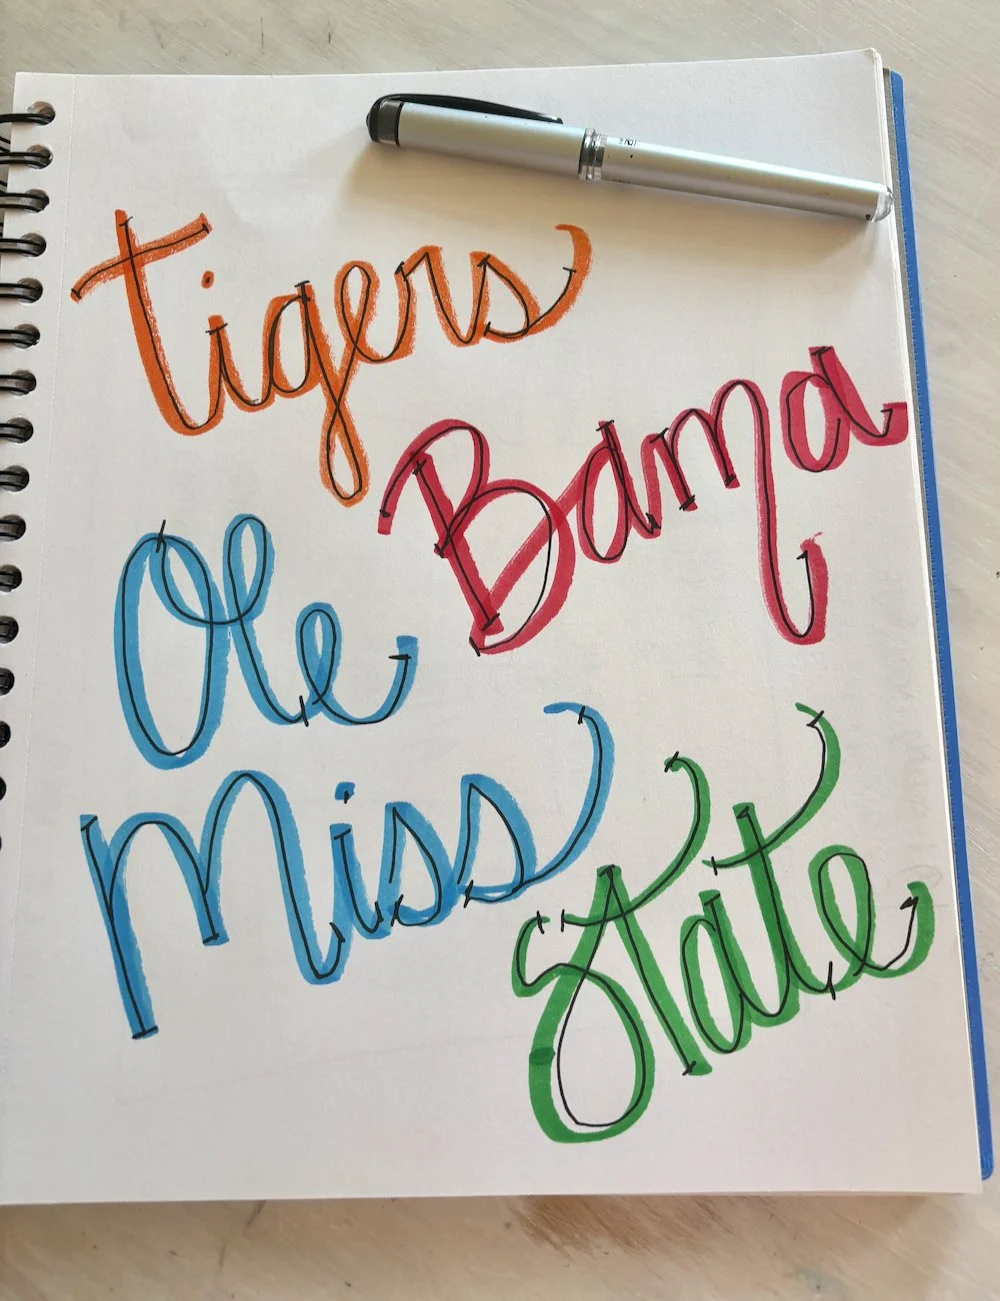 Tigers
Bama
Ole
Miss
State